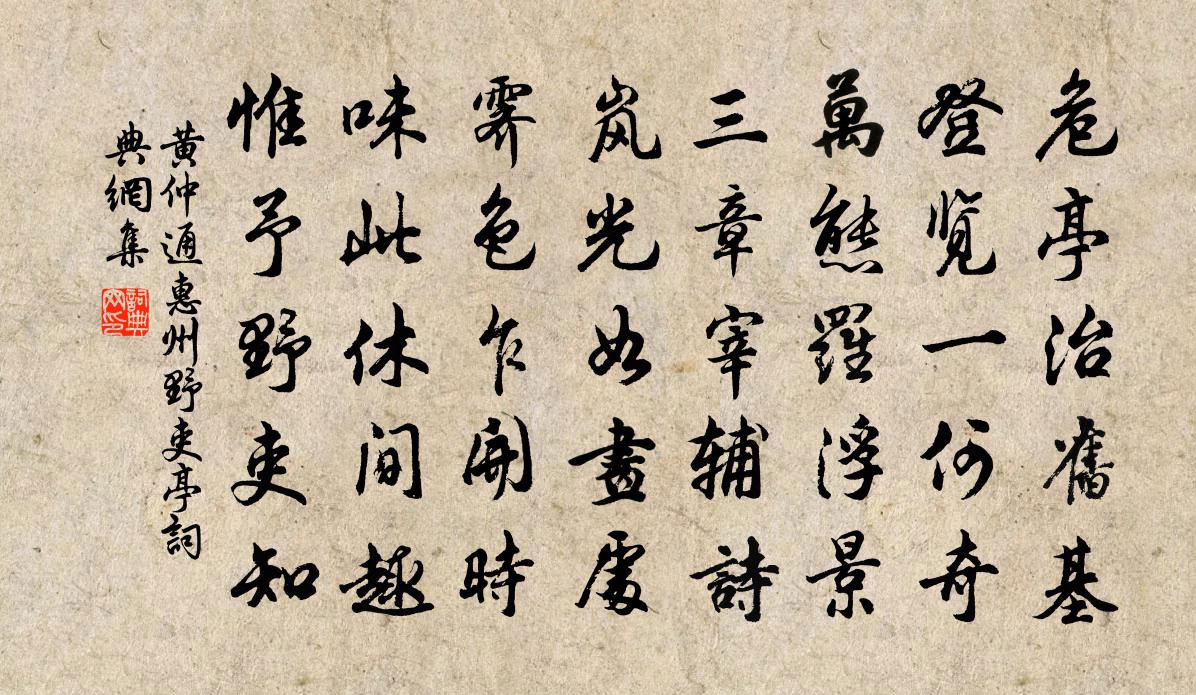 危亭治舊基
登览一何奇
萬態羅浮景
三章宰辅詩
岚光如畫處
霽色乍開時
味此休閒趣
惟予野吏知
黄仲通惠州野吏亭詞
典網集
詞典
网印